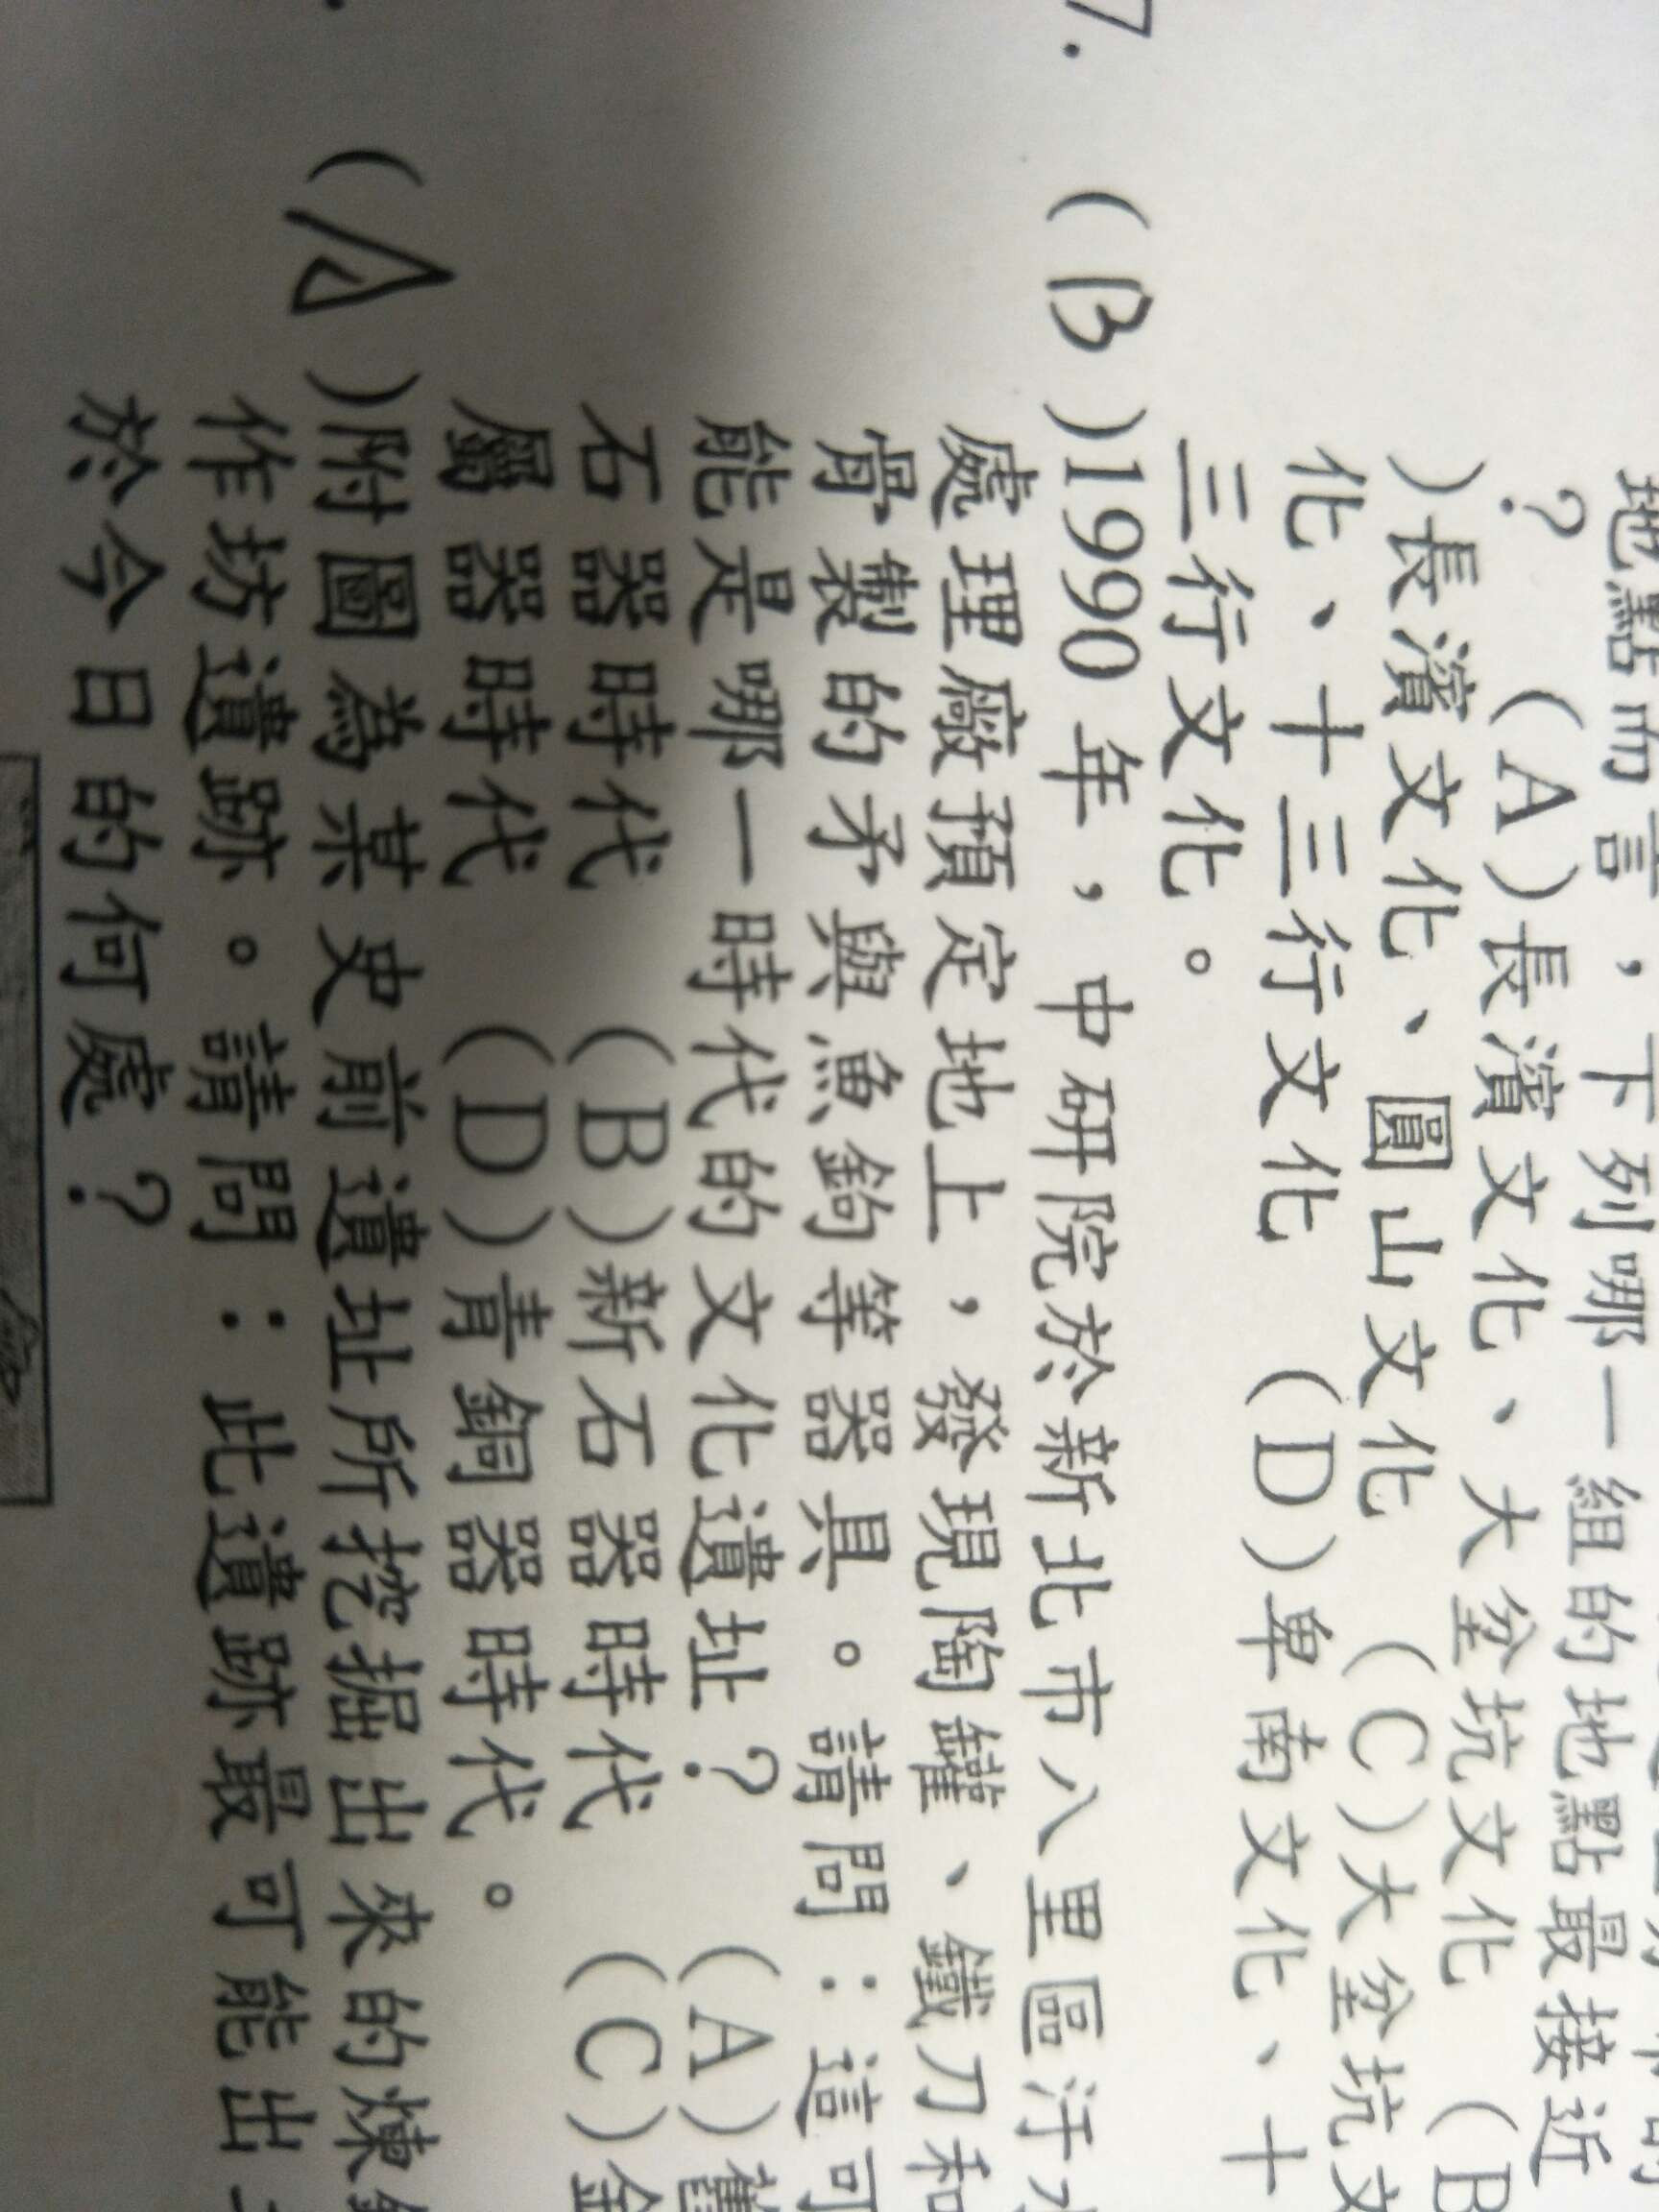 地點而言，下列哪一組的地點最接近
？ (A)長濱文化、大坌坑文化 (B
)長濱文化、圓山文化 (C)大坌坑文
化、十三行文化 (D)卑南文化、十
三行文化。
7. (B)1990 年，中研院於新北市八里區汙
處理廠預定地上，發現陶罐、鐵刀和
骨製的矛與魚鉤等器具。請問：這可
能是哪一時代的文化遺址？ (A)舊
石器時代 (B)新石器時代 (C)金
屬器時代 (D)青銅器時代。
(A)附圖為某史前遺址所挖掘出來的煉
作坊遺跡。請問：此遺跡最可能出
於今日的何處？